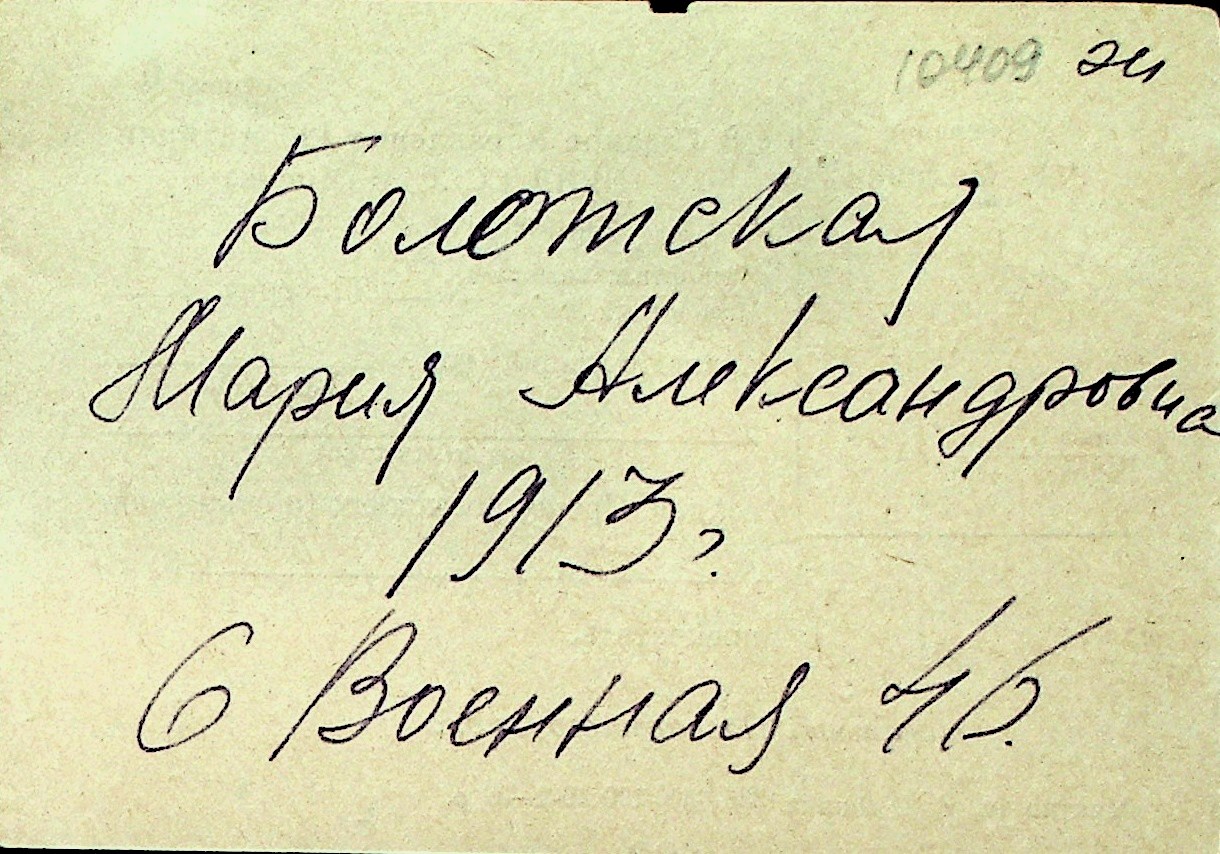 10409 эи
Болотская
Мария Александровна
1913 г.
6 Военная 4Б.